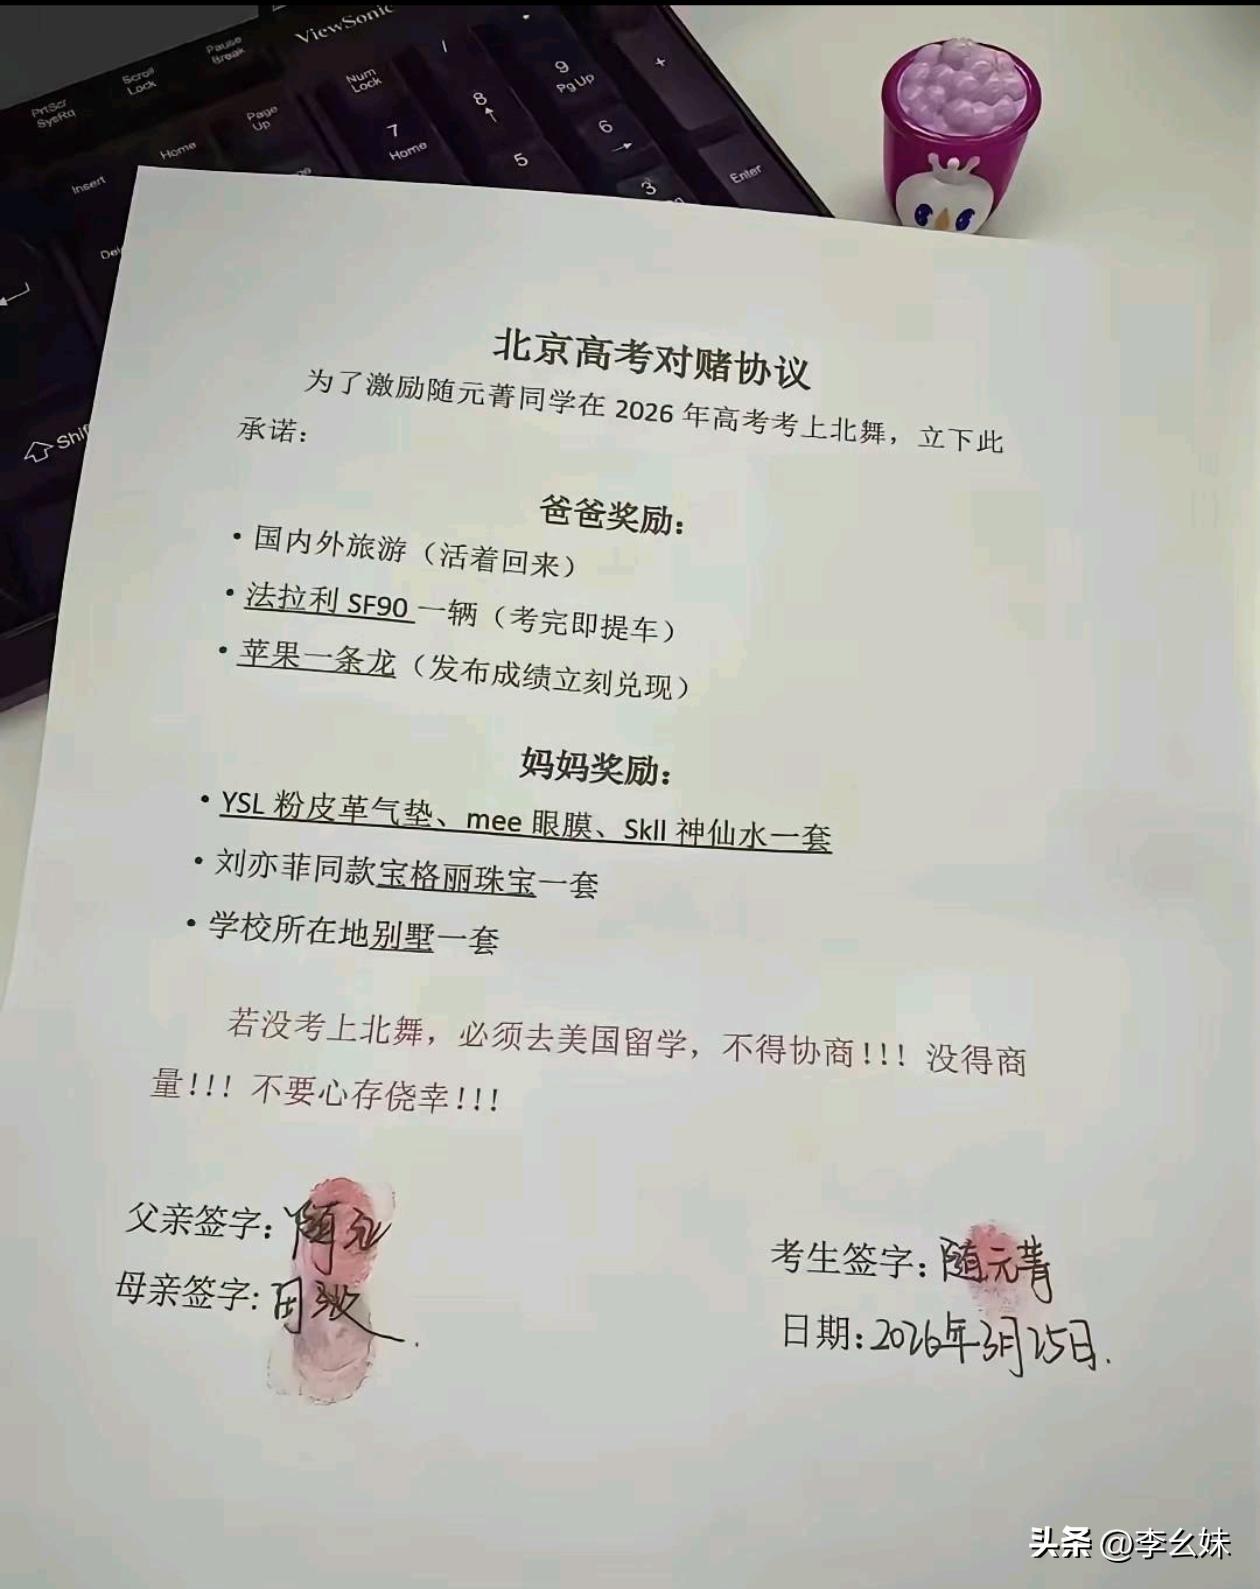 ViewSonic
Pause
Break
Scroll
Lock
PrtScr
SysRq
Num
Lock
/
9
PgUp
+
8
Page
Up
7
Home
6
5
Home
Insert
3
Enter
Del
Shif
北京高考对赌协议
为了激励随元菁同学在 2026 年高考考上北舞，立下此
承诺：
爸爸奖励：
• 国内外旅游（活着回来）
• 法拉利 SF90 一辆（考完即提车）
• 苹果一条龙（发布成绩立刻兑现）
妈妈奖励：
• YSL 粉皮革气垫、mee 眼膜、Skll 神仙水一套
• 刘亦菲同款宝格丽珠宝一套
• 学校所在地别墅一套
若没考上北舞，必须去美国留学，不得协商!!! 没得商
量!!! 不要心存侥幸!!!
父亲签字: 随元
母亲签字: 田
考生签字: 随元菁
日期: 2026年3月25日.
头条 @李幺妹